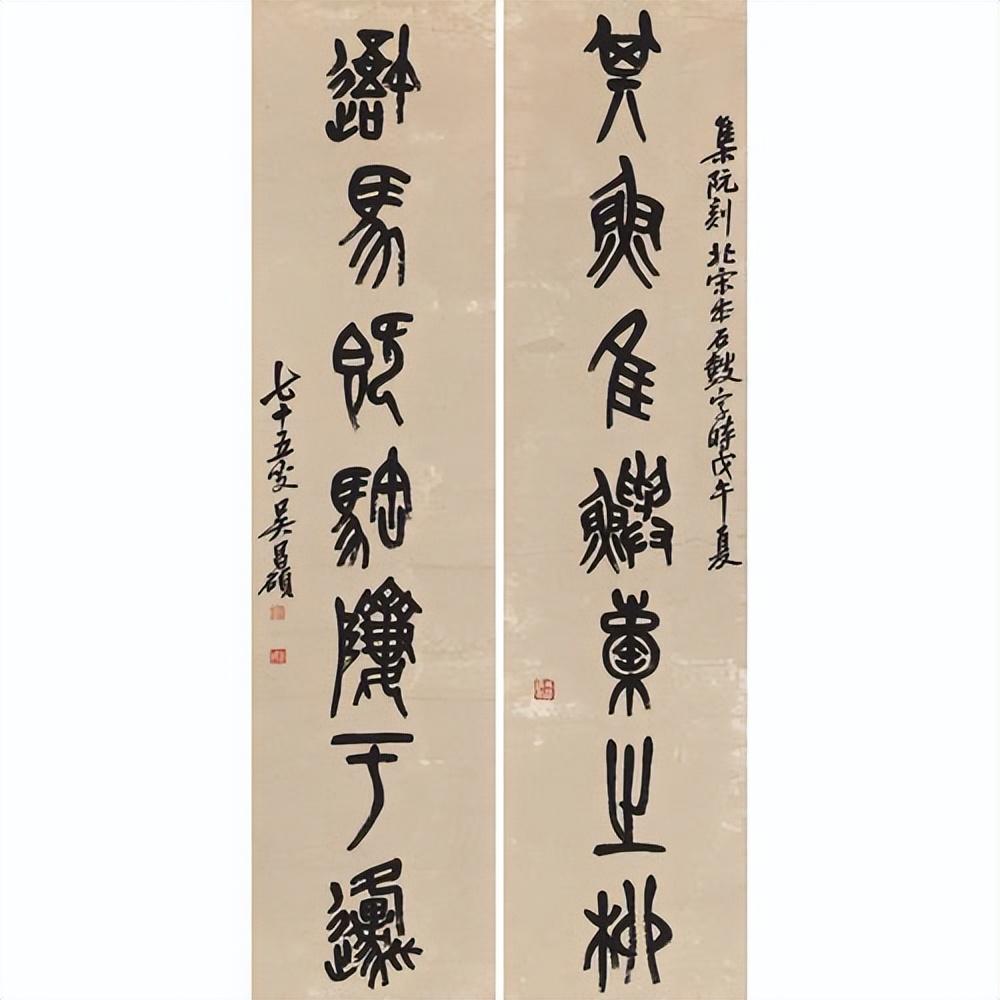 集阮刻北宋本石鼓字時戊午夏
其魚隹鱮橐之柳
馬既𩣡于邍
七十五叟吳昌碩